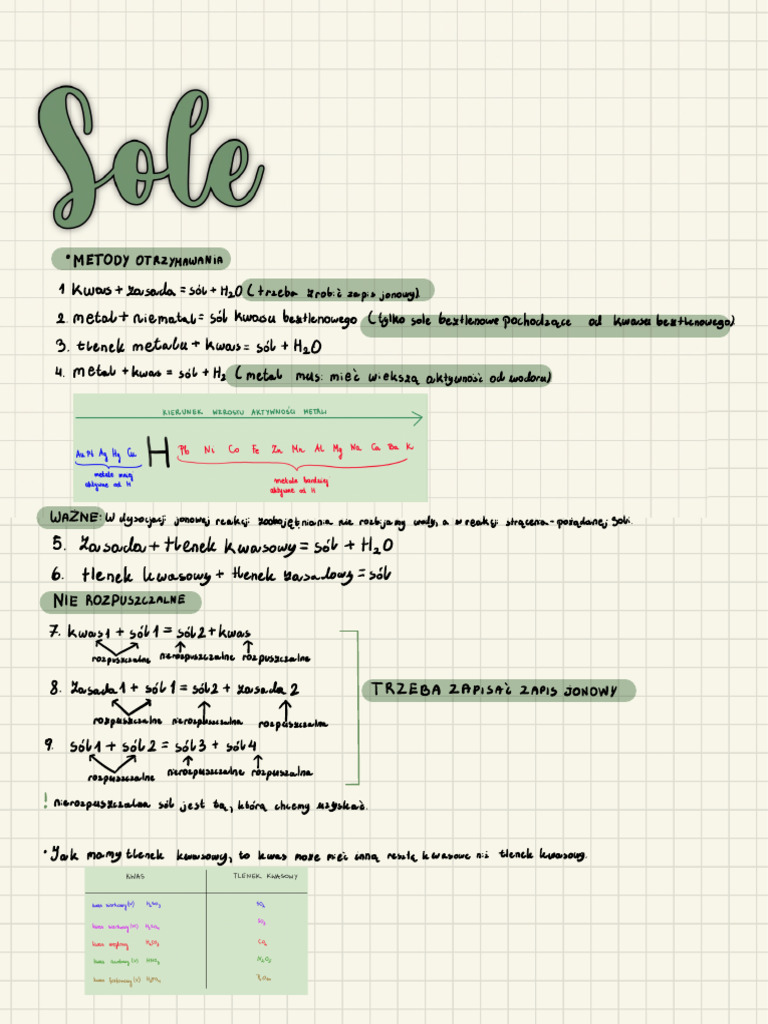 Sole
• METODY OTRZYMYWANIA
1 kwas + zasada = sól + H₂O (trzeba zrobić zapis jonowy)
2. metal + niemetal = sól kwasu beztlenowego (tylko sole beztlenowe pochodzące od kwasu beztlenowego)
3. tlenek metalu + kwas = sól + H₂O
4. metal + kwas = sól + H₂ (metal musi mieć większą aktywność od wodoru)
KIERUNEK WZROSTU AKTYWNOŚCI METALI
Au Pt Ag Hg Cu H Pb Ni Co Fe Zn Mn Al Mg Na Ca Ba K
metale mniej aktywne od H
metale bardziej aktywne od H
WAŻNE: W dysocjacji jonowej reakcji zobojętniania nie rozbijamy wody, a w reakcji strącania - pożądanej soli.
5. zasada + tlenek kwasowy = sól + H₂O
6. tlenek kwasowy + tlenek zasadowy = sól
NIE ROZPUSZCZALNE
7. kwas 1 + sól 1 = sól 2 + kwas
rozpuszczalne nierozpuszczalne rozpuszczalne
8. zasada 1 + sól 1 = sól 2 + zasada 2
TRZEBA ZAPISAĆ ZAPIS JONOWY
rozpuszczalne nierozpuszczalna rozpuszczalna
9. sól 1 + sól 2 = sól 3 + sól 4
rozpuszczalne nierozpuszczalne rozpuszczalna
! nierozpuszczalna sól jest tą, którą chcemy uzyskać.
• Jak mamy tlenek kwasowy, to kwas może mieć inną resztę kwasową niż tlenek kwasowy.
KWAS TLENEK KWASOWY
kwas siarkowy (IV) H₂SO₃ SO₂
kwas siarkowy (VI) H₂SO₄ SO₃
kwas węglowy H₂CO₃ CO₂
kwas azotowy (V) HNO₃ N₂O₅
kwas fosforowy (V) H₃PO₄